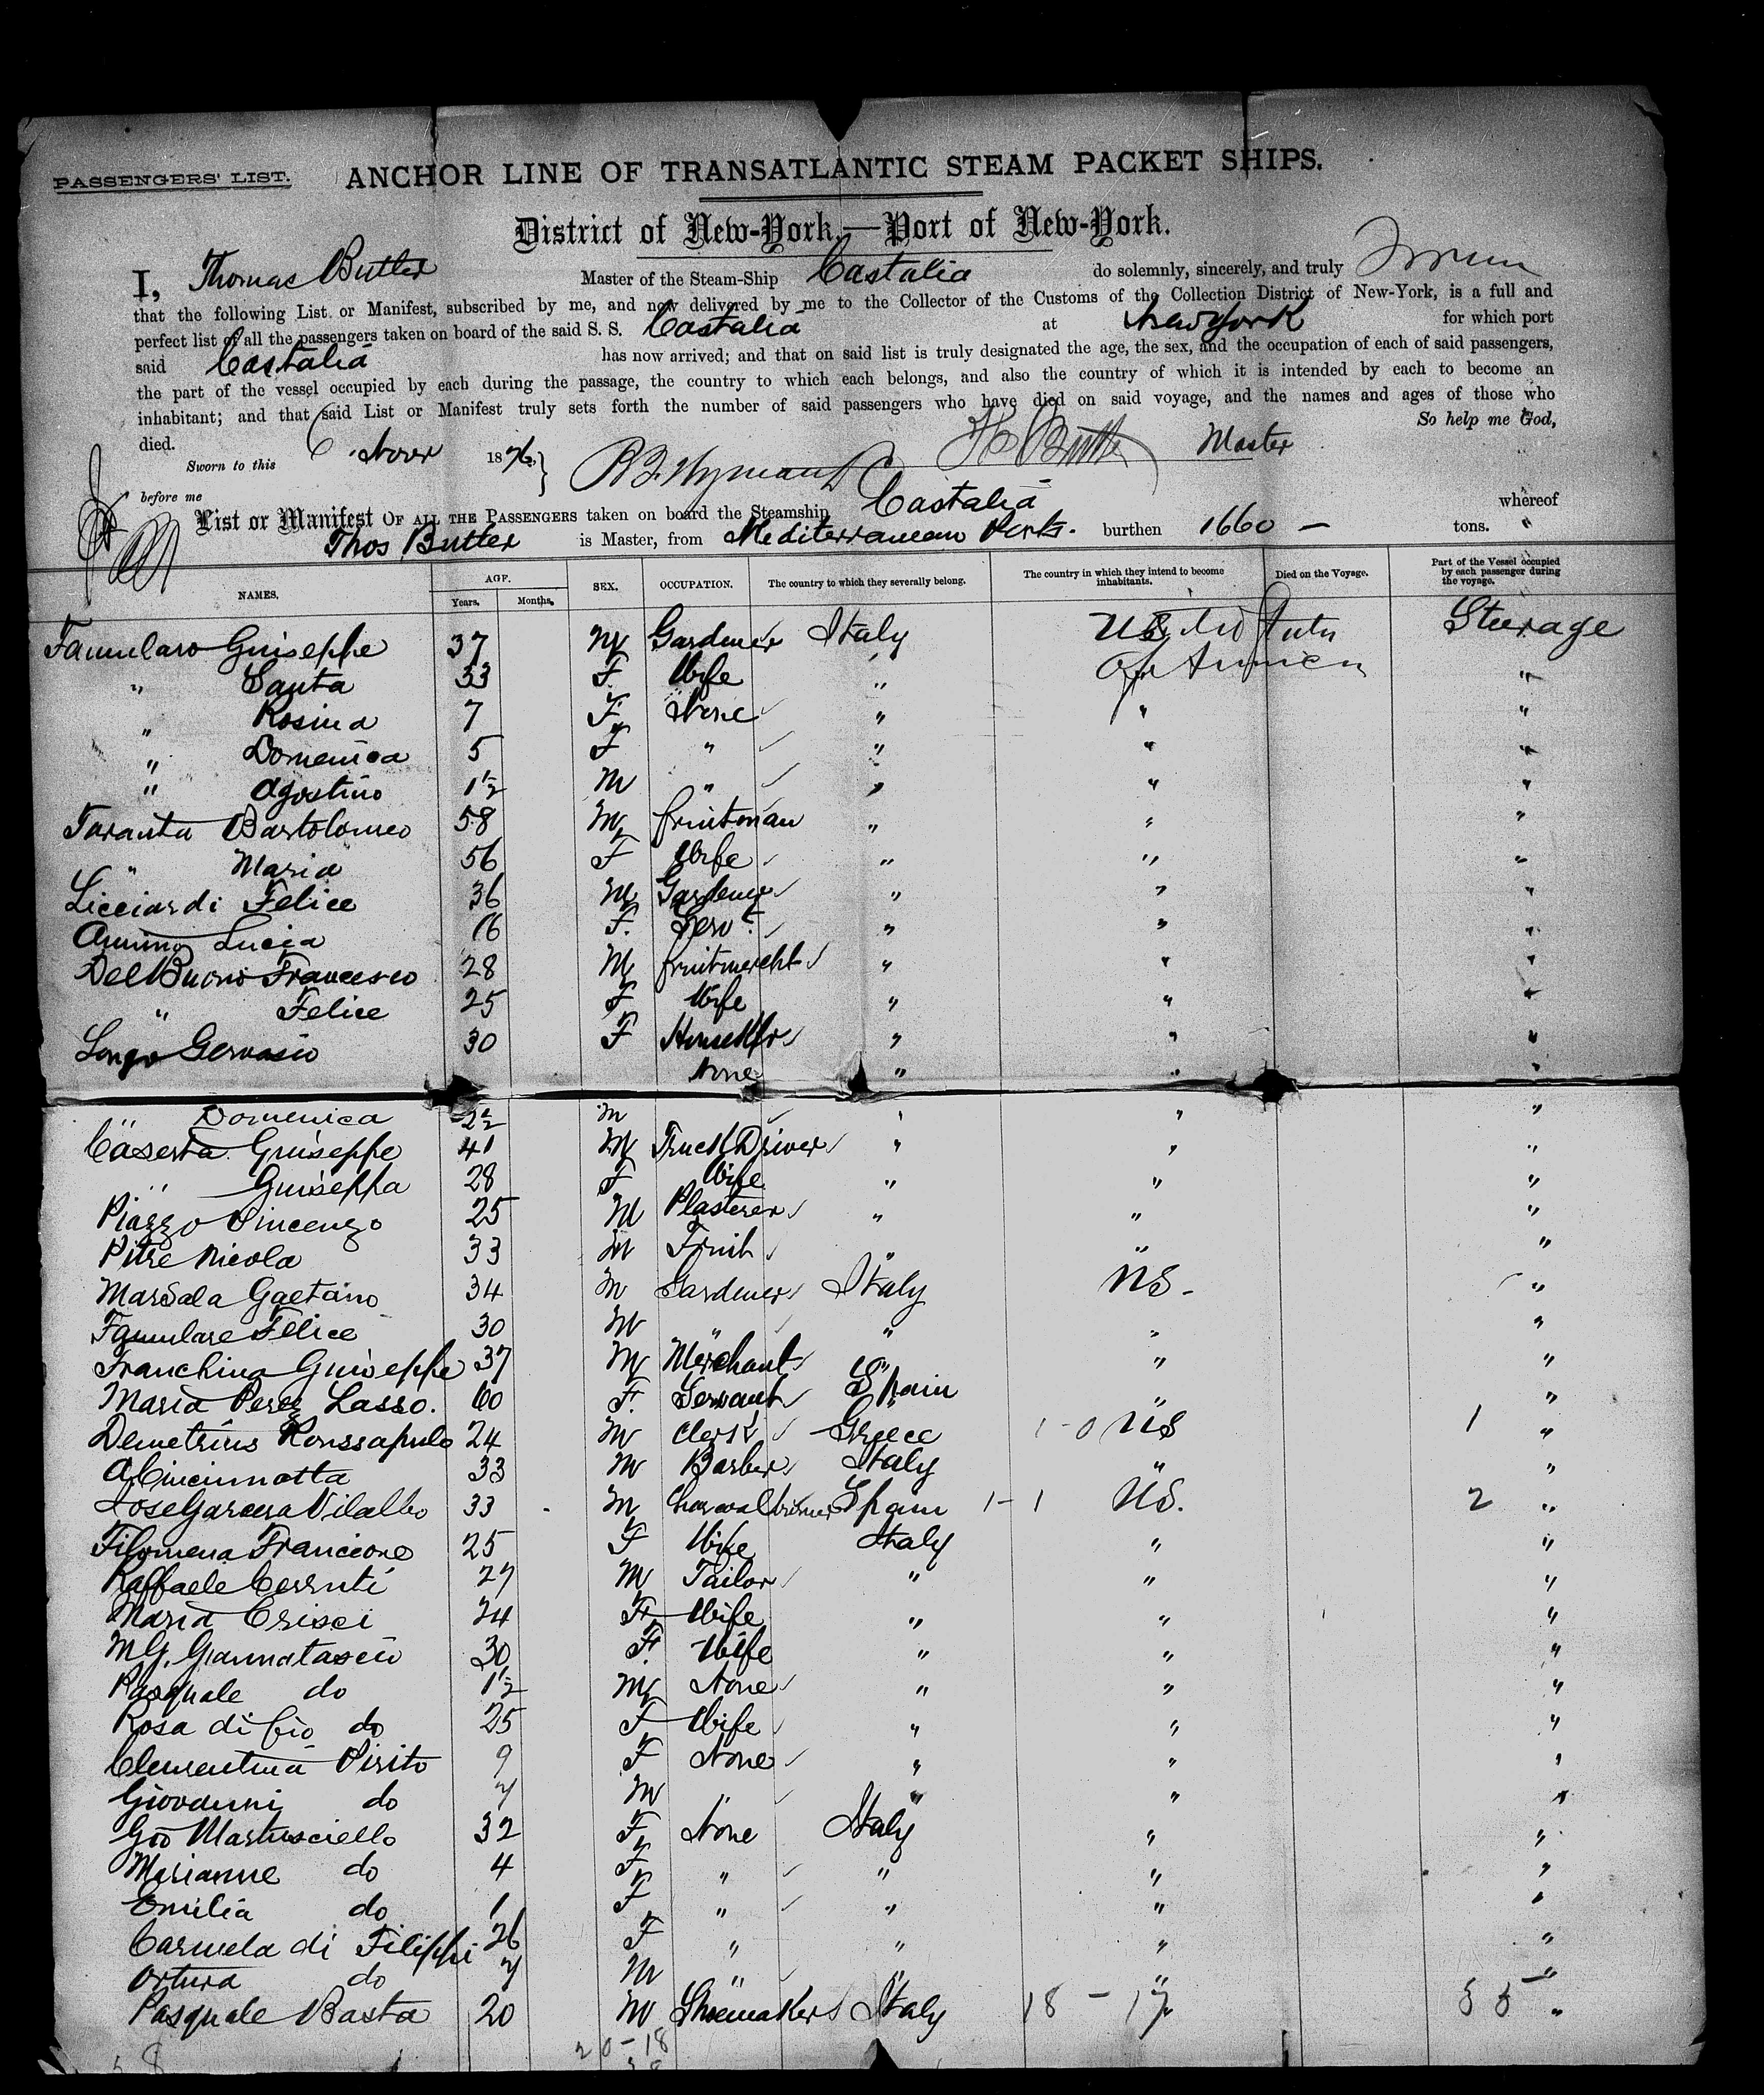 PASSENGERS' LIST. ANCHOR LINE OF TRANSATLANTIC STEAM PACKET SHIPS.
District of New-York.—Port of New-York.
I, Thomas Butler Master of the Steam-Ship Castalia do solemnly, sincerely, and truly
that the following List or Manifest, subscribed by me, and now delivered by me to the Collector of the Customs of the Collection District of New-York, is a full and
perfect list of all the passengers taken on board of the said S. S. Castalia at New York for which port
said Castalia has now arrived; and that on said list is truly designated the age, the sex, and the occupation of each of said passengers,
the part of the vessel occupied by each during the passage, the country to which each belongs, and also the country of which it is intended by each to become an
inhabitant; and that said List or Manifest truly sets forth the number of said passengers who have died on said voyage, and the names and ages of those who
died. So help me God,
Sworn to this Nover 1876 Master
before me
List or Manifest OF ALL THE PASSENGERS taken on board the Steamship Castalia whereof
Thos Butler is Master, from Mediterranean Ports. burthen 1660 — tons.
NAMES. AGE. Years. Months. SEX. OCCUPATION. The country to which they severally belong. The country in which they intend to become inhabitants. Died on the Voyage. Part of the Vessel occupied by each passenger during the voyage.
Famularo Guiseppe 37 M Gardener Italy United States Sturage
" Santa 33 F. Wife " of America "
" Rosina 7 F None " " "
" Domenica 5 F " " " "
" Agostino 1½ M " " " "
Taranta Bartolomeo 58 M fruitman " " "
" Maria 56 F Wife " " "
Licciardi Felice 36 M Gardener " " "
Lucia 16 F. Servt. " " "
Del Buono Francesco 28 M fruitmercht " " "
" Felice 25 F Wife " " "
Longo Gervasio 30 F Housekpr " " "
None " " "
" Domenica 2½ M " " "
Caserta Guiseppe 41 M Truck Driver " " "
" Guiseppa 28 F Wife " " "
Piazzo Vincenzo 25 M Plasterer " " "
Pitre Nicola 33 M Fruit " " "
Marsala Gaetano 34 M Gardener Italy US - "
Famulare Felice 30 M " " " "
Franchina Guiseppe 37 M Merchant " " "
Maria Perez Lasso. 60 F. Servant Spain " "
Demetrius Roussapulo 24 M Clerk Greece 1-0 US 1 "
A Cincinnotta 33 M Barber Italy " "
Jose Garcera Vilalbo 33 M Spain 1-1 US. 2 "
Filomena Francione 25 F Wife Italy " "
Raffaele Cerruti 27 M Tailor " " "
Maria Crisci 24 F Wife " " "
M G. Giannatasio 30 F. Wife " " "
Pasquale do 1½ M None " " "
Rosa di Gio do 25 F Wife " " "
Clementina Pirito 9 F None " " "
Giovanni do 7 M " " " "
Gio Martusciello 32 F None Italy " "
Marianne do 4 F " " " "
Emilia do 1 F " " " "
Carmela di Filippi 26 F " " " "
Ortura do 7 M " " " "
Pasquale Basta 20 M Shoemaker Italy 18 - 17 " 35 "
20-18